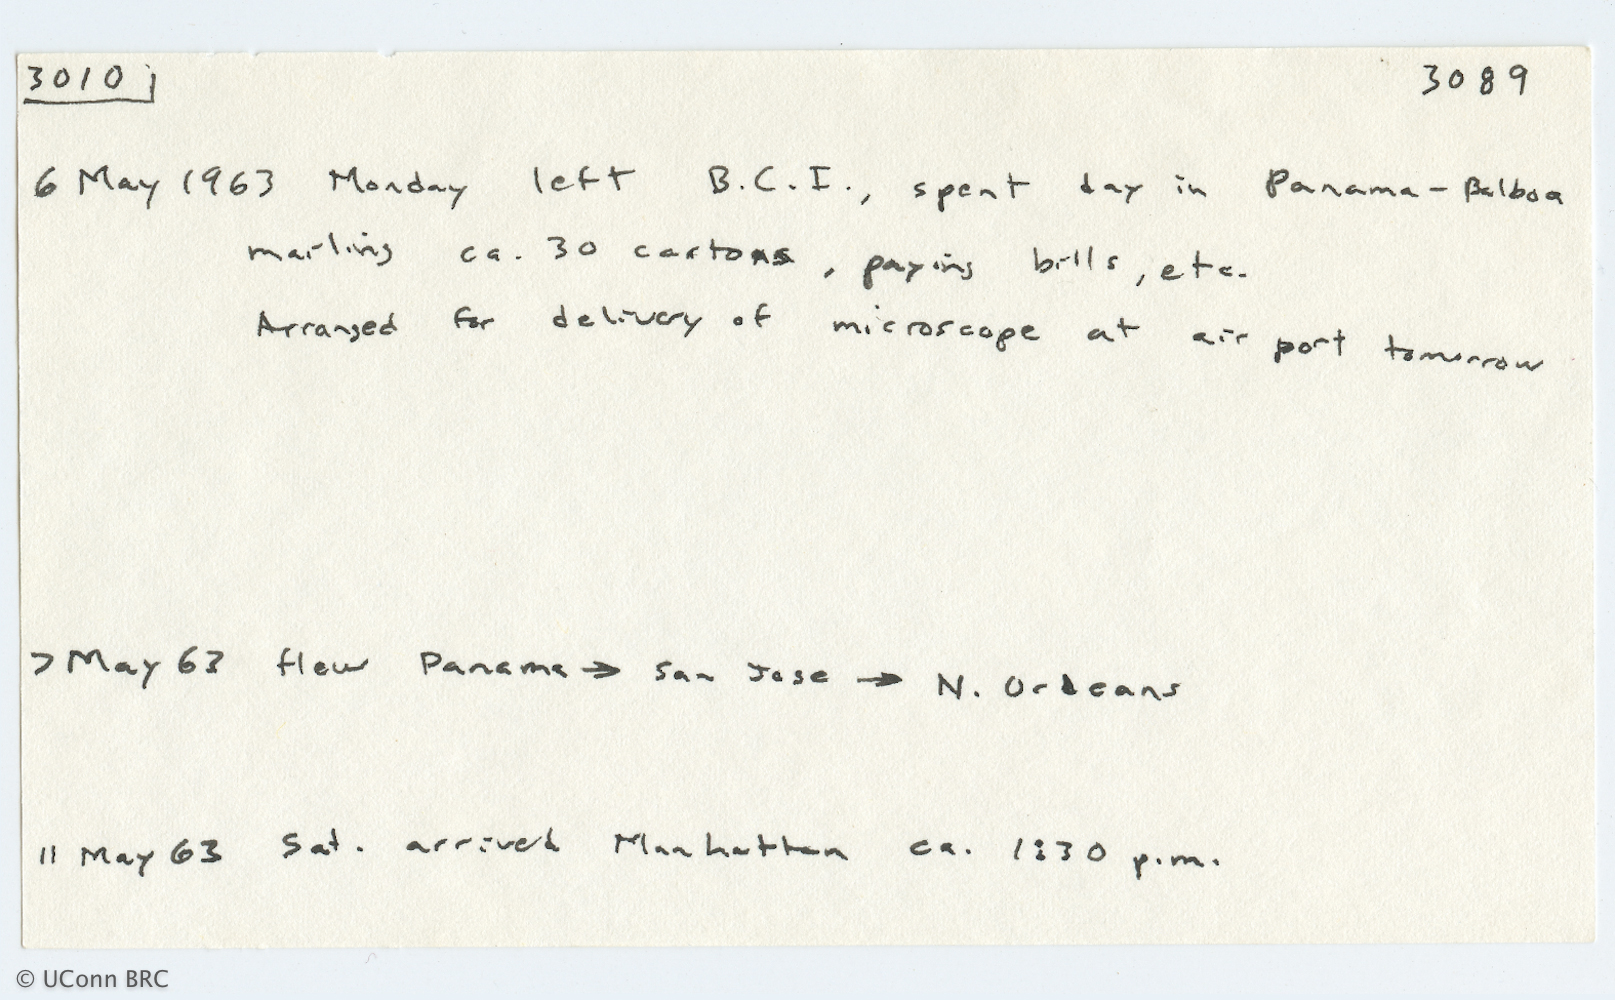 3010j 3089
6 May 1963 Monday left B.C.I., spent day in Panama-Balboa
mailing ca. 30 cartons, paying bills, etc.
Arranged for delivery of microscope at air port tomorrow
7 May 63 flew Panama → San Jose → N. Orleans
11 May 63 Sat. arrived Manhattan ca. 1:30 p.m.
© UConn BRC